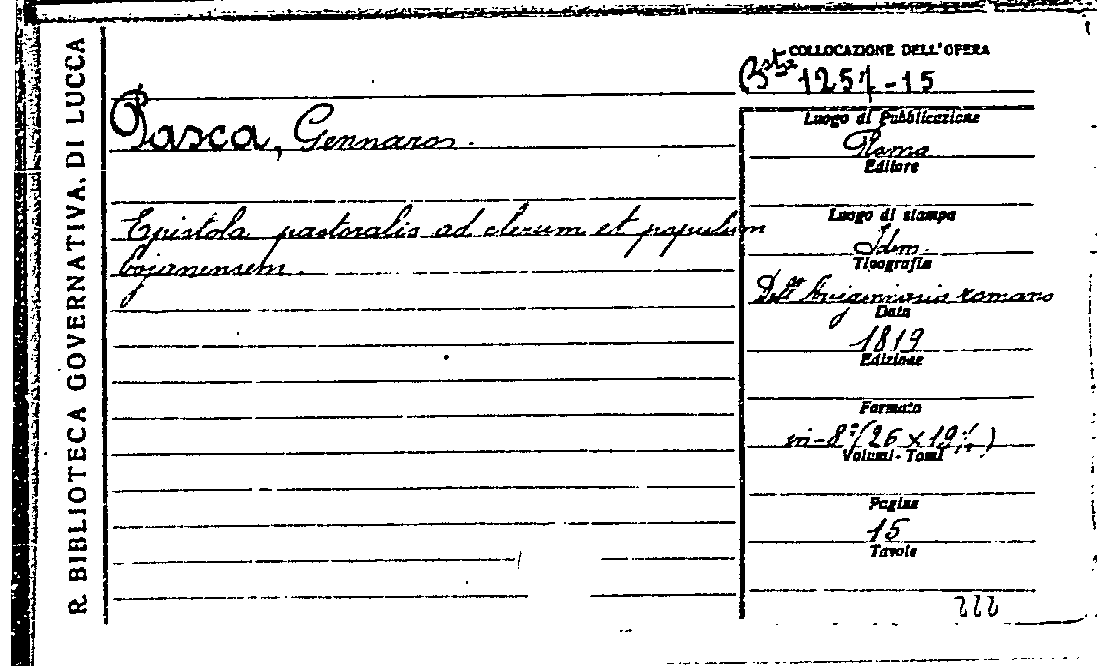 R. BIBLIOTECA GOVERNATIVA. DI LUCCA
COLLOCAZIONE DELL'OPERA
Bste 1257-15
Pasca, Gennaro.
Epistola pastoralis ad clerum et populum
bojanensem.
Luogo di Pubblicazione
Roma
Editore
Luogo di stampa
Idem.
Tipografia
romano
Data
1819
Edizione
Formato
in-8° (26 x 19
Volumi-Tomi
Pagine
15
Tavole
222